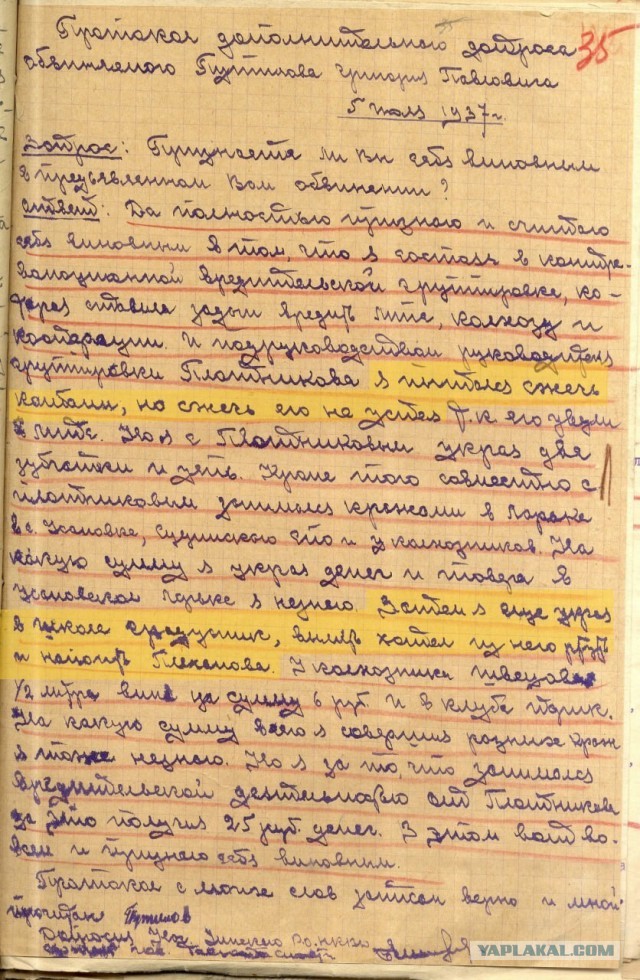 35
Протокол дополнительного допроса
обвиняемого Путилова Григория Павловича
5 июля 1937 г.
Вопрос: Признаете ли Вы себя виновным
в предъявленном Вам обвинении?
Ответ: Да полностью признаю и считаю
себя виновным в том, что я состоял в контре-
волюционной вредительской группировке, ко-
торая ставила задачи вредить МТС, колхозу и
кооперации. И под руководством руководителя
группировки Плотникова я пытался сжечь
комбаин, но сжечь его не успел т.к. его увезли
в МТС. Но я с Плотниковым украл две
и цепь. Кроме того совместно с
Плотниковым занимался кражами в ларьке
в с. Усановке, Сельпо и у колхозников. На
какую сумму я украл денег и товара в
Усановском ларьке я незнаю. Затем я еще украл
в школе градусник, хотел из него ртуть
и Плеханова. У колхозника Швецова
1/2 литра вина за сумму 6 руб. и в клубе
На какую сумму всего я совершил разных краж
я тоже незнаю. Но я за то, что занимался
вредительской деятельностью от Плотникова
за это получил 25 руб. денег. В этом вот во-
всем и признаю себя виновным.
Протокол с моих слов записан верно и мной
прочитан Путилов
Допросил
YAPLAKAL.COM